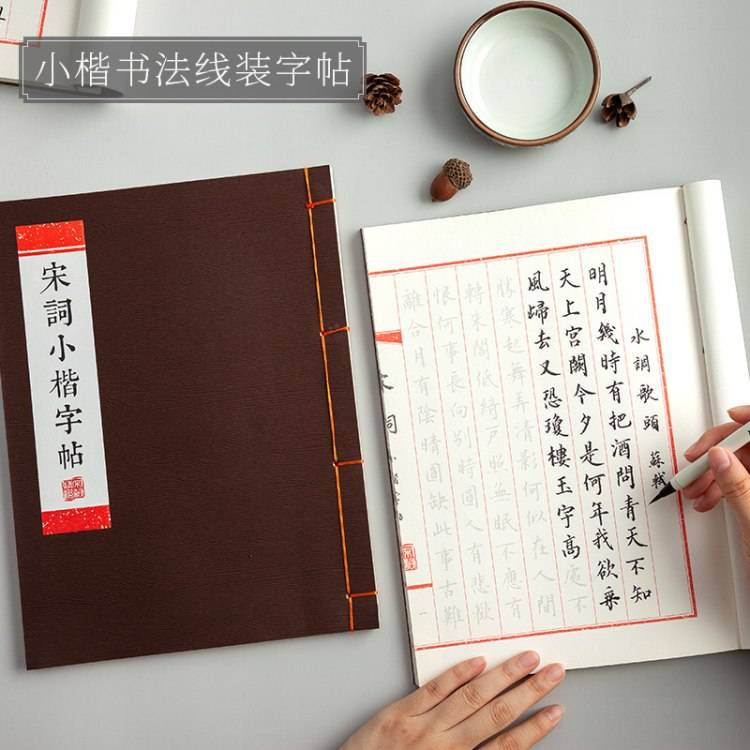 小楷书法线装字帖
宋詞小楷字帖
水調歌頭 蘇軾
明月幾時有把酒問青天不知
天上宮闕今夕是何年我欲乘
風歸去又恐瓊樓玉宇高處不
勝寒起舞弄清影何似在人間
轉朱閣低綺戶照無眠不應有
恨何事長向別時圓人有悲歡
離合月有陰晴圓缺此事古難
宋詞